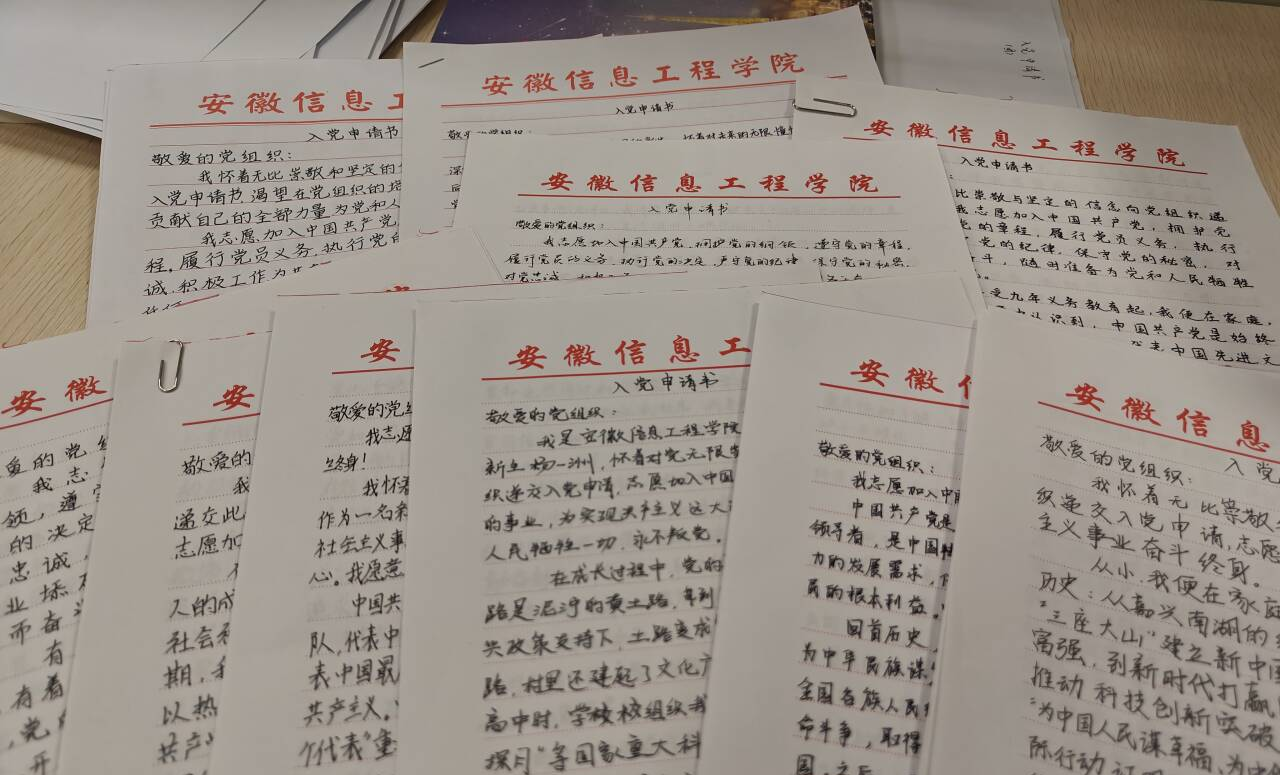 安徽信息工
入党申请书
敬爱的党组织:
我怀着无比崇敬和坚定的
入党申请书,渴望在党组织的培
贡献自己的全部力量为党和人
我志愿加入中国共产党
程。履行党员义务,执行党的
诚,积极工作为
安徽信息工程学院
入党申请书
安徽信息工程学院
入党申请书
敬爱的党组织:
我志愿加入中国共产党,拥护党的纲领,遵守党的章程,
履行党员的义务,执行党的决定,严守党的纪律,保守党的秘密,
对党忠诚
安徽信息工程学院
入党申请书
比崇敬与坚定的信念向党组织递
我志愿加入中国共产党,拥护党
党的章程,履行党员义务,执行
党的纪律,保守党的秘密,对
斗,随时准备为党和人民牺牲
受九年义务教育起,我便在家庭,
认识到,中国共产党是始终
中国先进文
安徽
的党组
我志
领,遵守
的决定
忠诚,
业
而奋
有
有着
党
开
安
敬爱的
我
递交此
志愿加
人的成
社会
期,我
以热
共产
安
敬爱的党组
我志愿
终身!
我怀着
作为一名
社会主义事
心。我愿意
中国共
队,代表中
表中国最
共产主义。
个代表”重
安徽信息工
入党申请书
敬爱的党组织:
我是安徽信息工程学院
新生杨一洲,怀着对党无限
织递交入党申请,志愿加入中国
的事业,为实现共产主义远大
人民牺牲一切,永不叛党。
在成长过程中,党的
路是泥泞的黄土路,等到
兴政策支持下,土路变成
路,村里还建起了文化广
高中时,学校校组织我
探月”等国家重大科
安徽信
敬爱的党组织:
我志愿加入中国
中国共产党是
领导者,是中国特
力的发展需求,
民的根本利益。
回首历史
为中华民族谋
全国各族人民
命斗争,取得
国。之后
安徽信息
入党
敬爱的党组织:
我怀着无比崇敬
织递交入党申请,志愿
主义事业奋斗终身。
从小,我便在家庭
历史:从嘉兴南湖的
“三座大山”建立新中国
富强,到新时代打赢
推动科技创新突破
“为中国人民谋幸福,为中
际行动